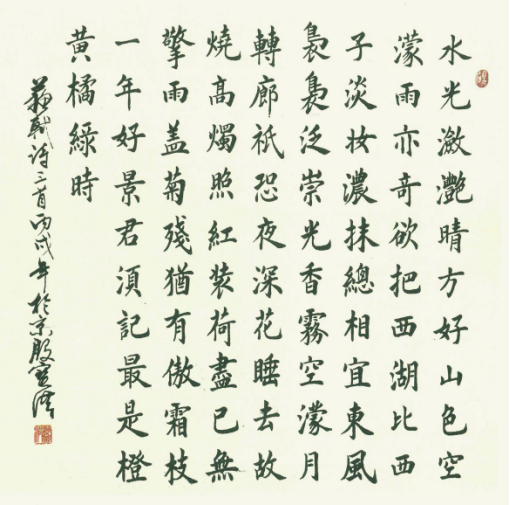 水光瀲灩晴方好山色空
濛雨亦奇欲把西湖比西
子淡妆濃抹總相宜東風
裊裊泛崇光香霧空濛月
轉廊祇恐夜深花睡去故
燒高燭照紅裝荷盡已無
擎雨盖菊殘猶有傲霜枝
一年好景君須記最是橙
黄橘綠時
蘇軾詩三首丙戌年於京殷